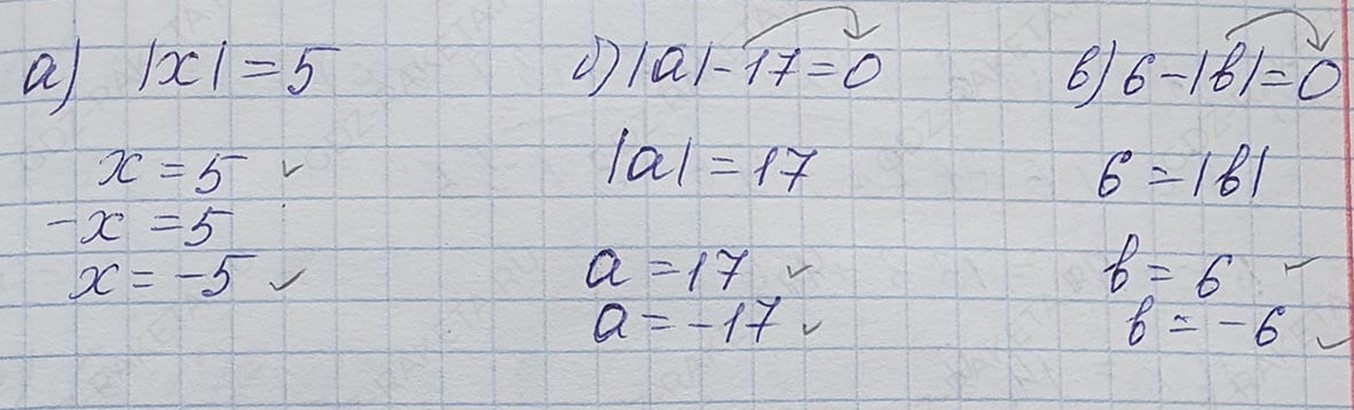 а) |x| = 5 б) |a| - 17 = 0 в) 6 - |b| = 0
x = 5 ✓ |a| = 17 6 = |b|
-x = 5
x = -5 ✓ a = 17 ✓ b = 6 ✓
a = -17 ✓ b = -6 ✓